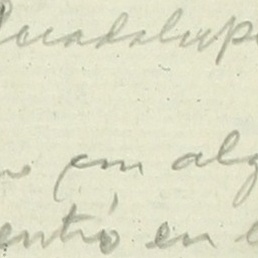 Guadalupe
en alg
entró en l